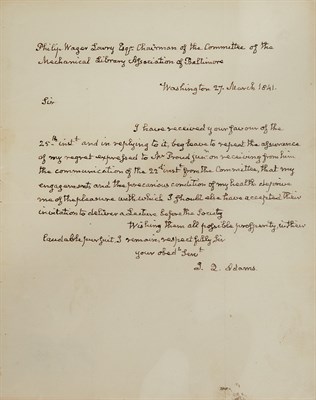 Philip Wager Lowry Esqr. Chairman of the Committee of the
Mechanical Library Association of Baltimore
Washington 27. March 1841.
Sir
I have received your favour of the
25th inst and in replying to it, beg leave to repeat the assurance
of my regret expressed to Mr Proud Jun: on receiving from him
the communication of the 22d inst from the Committee, that my
engagements, and the precarious condition of my health deprive
me of the pleasure with which I should else have accepted their
invitation to deliver a Lecture before the Society
Wishing them all possible prosperity in their
laudable pursuit I remain, respectfully Sir
your obedt Servt
J. Q. Adams.